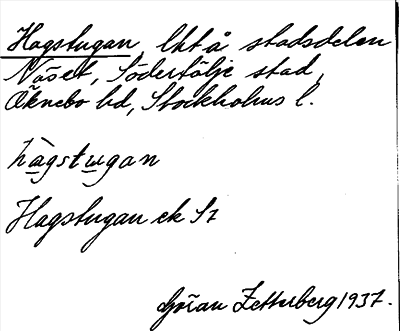 Hagstugan, lht å stadsdelen
Näset, Södertälje stad,
Öknebo hd, Stockholms l.
hàgstugan
Hagstugan ek St
Göran Zetterberg 1937.